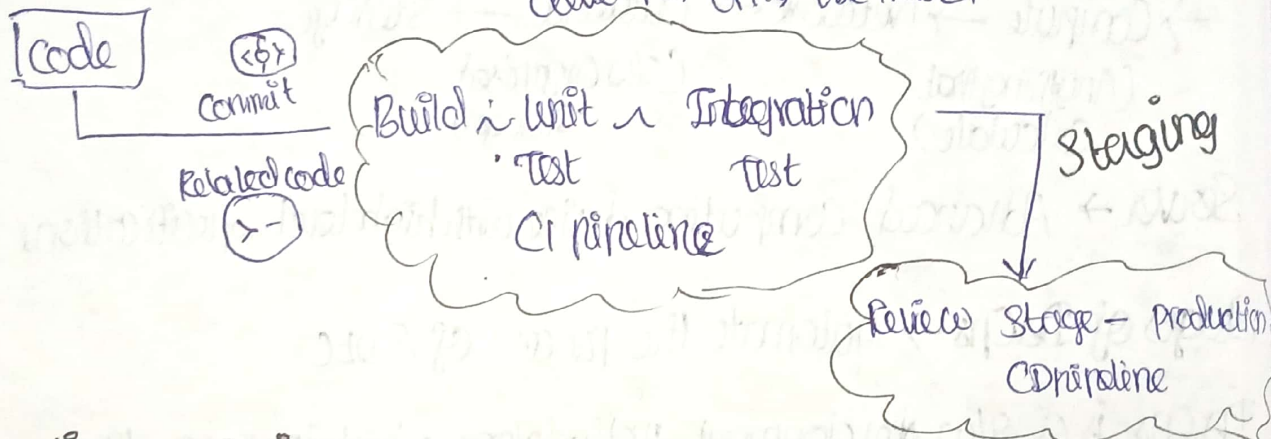 code
<$>
Commit
Related code
>-
Build Unit Integration
Test Test
CI pipeline
Staging
Review Stage - production
CD pipeline